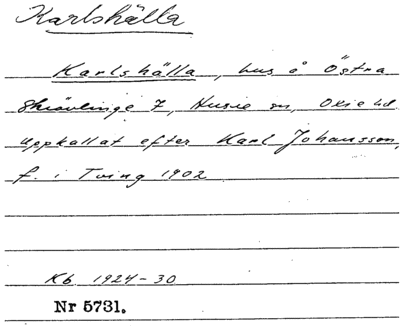 Karlshälla
Karlshälla, hus å Östra
Skrävlinge 7, Husie sn, Oxie hd
Uppkallat efter Karl Johansson,
f. i Tving 1902
Kb 1924-30
Nr 5731.